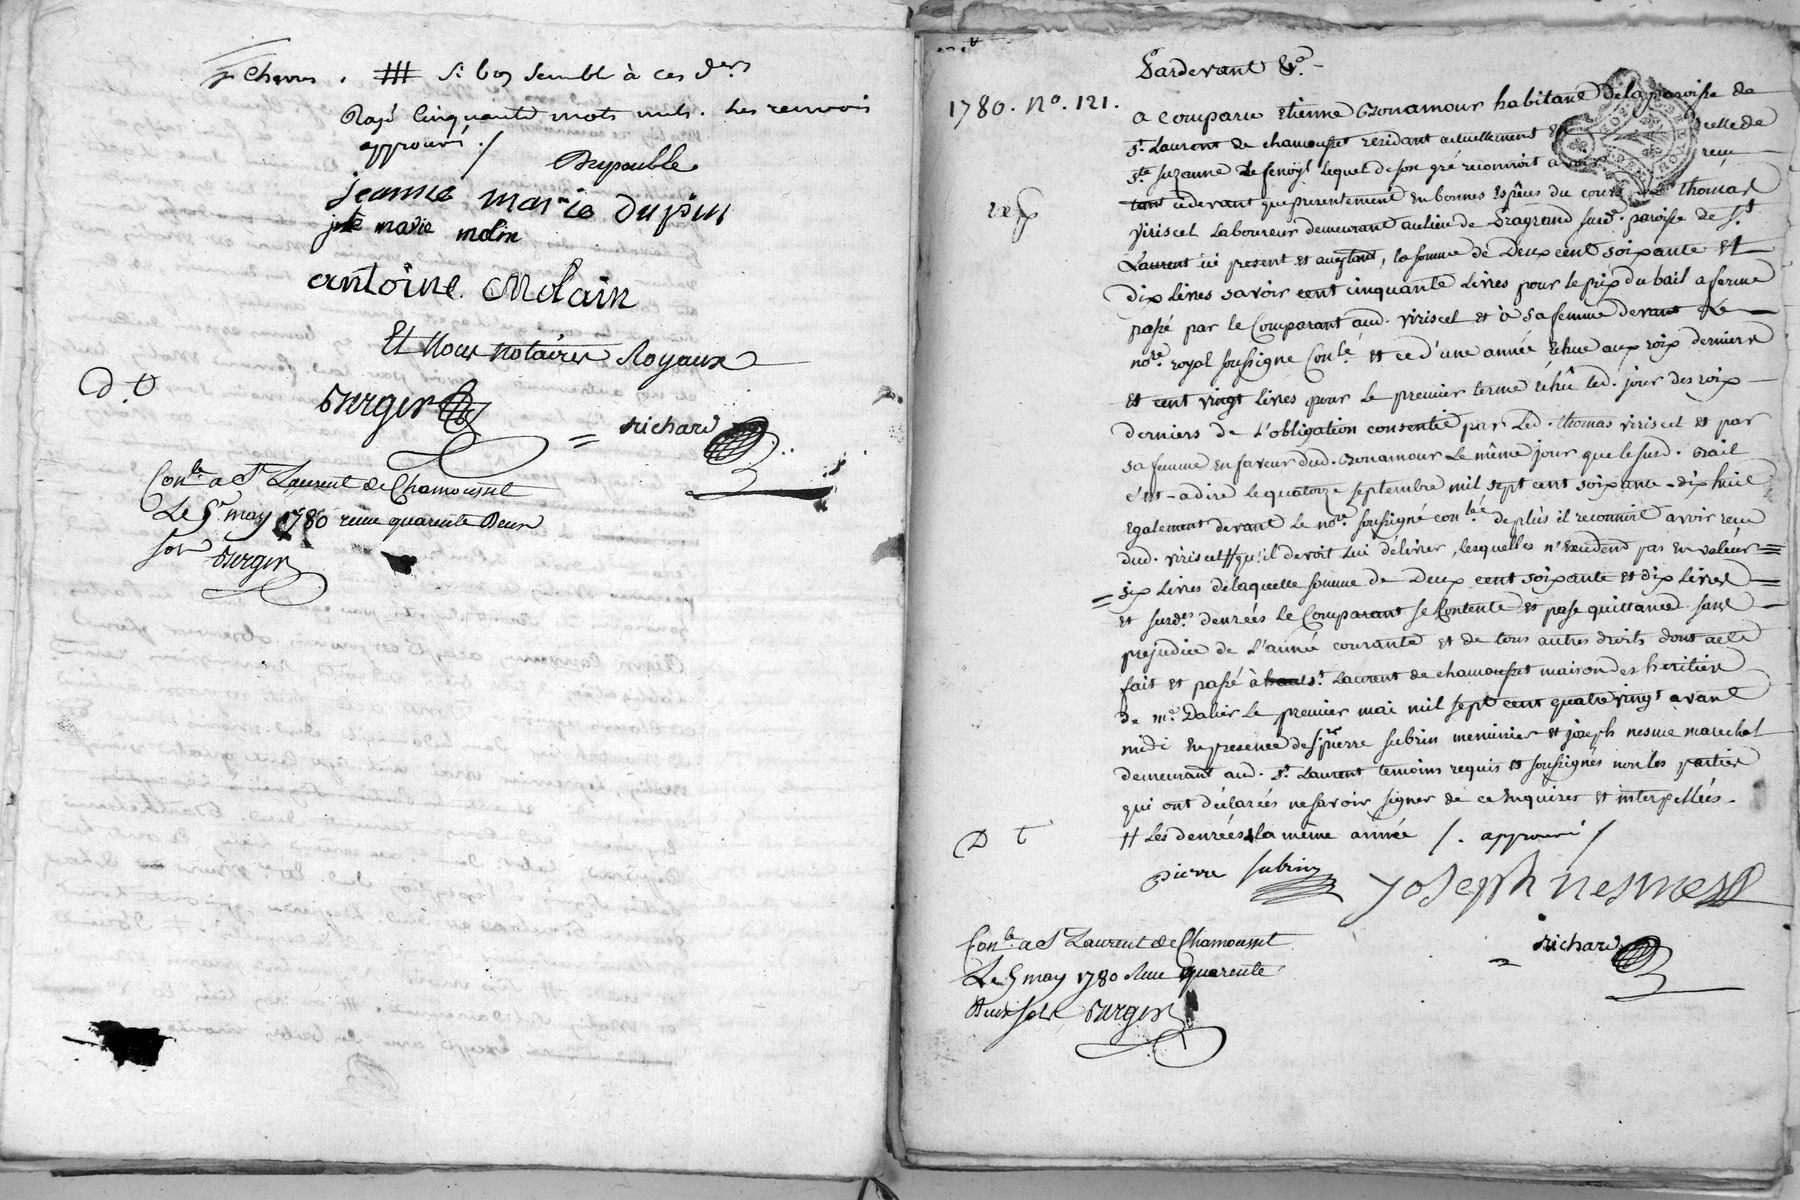 # si bon semble à ces d.ers
Rayé Cinquante mots nuls. Les renvois
approuvés ./
Dupouble
jeanne marie dupin
marie molin
antoine Molain
Et Nous notaires Royaux
D. T
Burgin
richard
Con.lé a S.t Laurent de Chamousset
Le 5.r may 1780 recu quarente Deux
sols Burgin
Pardevant &.a
1780. N.o 121.
a comparu Etienne Bonamour habitant de la paroisse de
S.t Laurent de chamousset residant actuellement celle de
S.te Suzanne de fenoÿl lequel de son gré reconnoit a recu
tant cidevant que presentement En bonnes Espèces du cours Thomas
exp
Viriscel Laboureur demeurant au lieu de Bragrand susd. paroisse de S.t
Laurent ici present et acceptant, la somme de Deux cent soixante Et
dix Livres savoir cent cinquante Livres pour le prix du bail a ferme
passé par le Comparant aud. Viriscel et à sa femme devant Le
no.re royal soussigné Con.lé et ce d'une année échue aux rois derniere
et cent vingt Livres pour le premier terme échû led. jour des rois
derniers de L'obligation consentie par Led. Thomas viriscel et par
sa femme en faveur dud. Bonamour Le même jour que le susd. Bail
c'est-a dire Le quatorze septembre mil sept cent soixante-dix huit
Egalement devant Le no.re soussigné con.lée, de plus il reconnoit avoir recu
dud. viriscel # qu'il devoit Lui délivrer, lesquelles n'excedent pas En valeur
six Livres de laquelle somme de Deux cent soixante et dix Livres
et susd.es denrées Le Comparant se Contente et passe quittance sans
prejudice de L'année courante et de tous autres droits dont acte
fait et passé à S.t Laurent de chamousset maison des heritiers
de m.e Dalier Le premier mai mil sept cent quatre vingt avant
midi En presence de S.r pierre subrin menuisier et joseph nesme marechal
demeurant aud. S.t Laurent temoins requis et soussignés non les parties
qui ont déclarées ne savoir signer de ce Enquises et interpellées.
# Les denrées de la même année /. approuvé /
D T
pierre subrin
joseph nesme
richard
Con.lé a S.t Laurent de Chamousset
Le 5 may 1780 Recu quarente
Deux sols Burgin